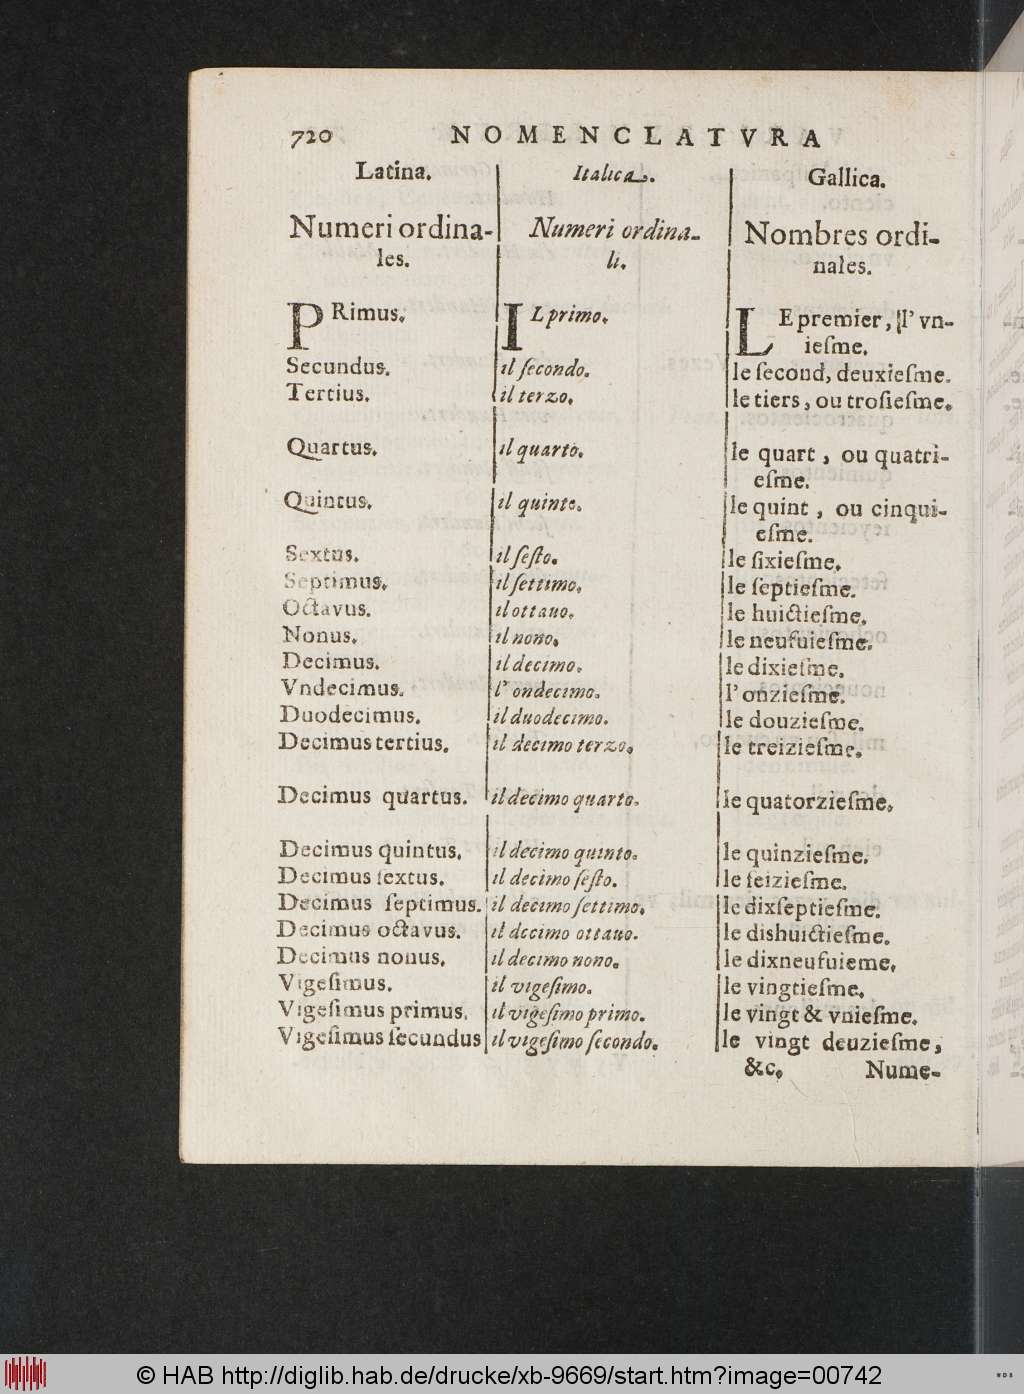 720 NOMENCLATVRA
Latina. Italica. Gallica.
Numeri ordina- Numeri ordina- Nombres ordi-
les. li. nales.
PRimus. IL primo. LE premier, l' vn-
ieſme.
Secundus. il ſecondo. le ſecond, deuxieſme.
Tertius. il terzo. le tiers, ou troſieſme.
Quartus. il quarto. le quart, ou quatri-
eſme.
Quintus. il quinto. le quint, ou cinqui-
eſme.
Sextus. il ſeſto. le ſixieſme.
Septimus. il ſettimo. le ſeptieſme.
Octavus. il ottauo. le huictieſme.
Nonus. il nono. le neufuieſme.
Decimus. il decimo. le dixieſme.
Vndecimus. l' ondecimo. l' onzieſme.
Duodecimus. il duodecimo. le douzieſme.
Decimus tertius. il decimo terzo. le treizieſme.
Decimus quartus. il decimo quarto. le quatorzieſme.
Decimus quintus. il decimo quinto. le quinzieſme.
Decimus ſextus. il decimo ſeſto. le ſeizieſme.
Decimus ſeptimus. il decimo ſettimo. le dixſeptieſme.
Decimus octavus. il decimo ottauo. le dishuictieſme.
Decimus nonus. il decimo nono. le dixneufuieme.
Vigeſimus. il vigeſimo. le vingtieſme.
Vigeſimus primus. il vigeſimo primo. le vingt & vnieſme.
Vigeſimus ſecundus il vigeſimo ſecondo. le vingt deuzieſme,
&c. Nume-
© HAB http://diglib.hab.de/drucke/xb-9669/start.htm?image=00742